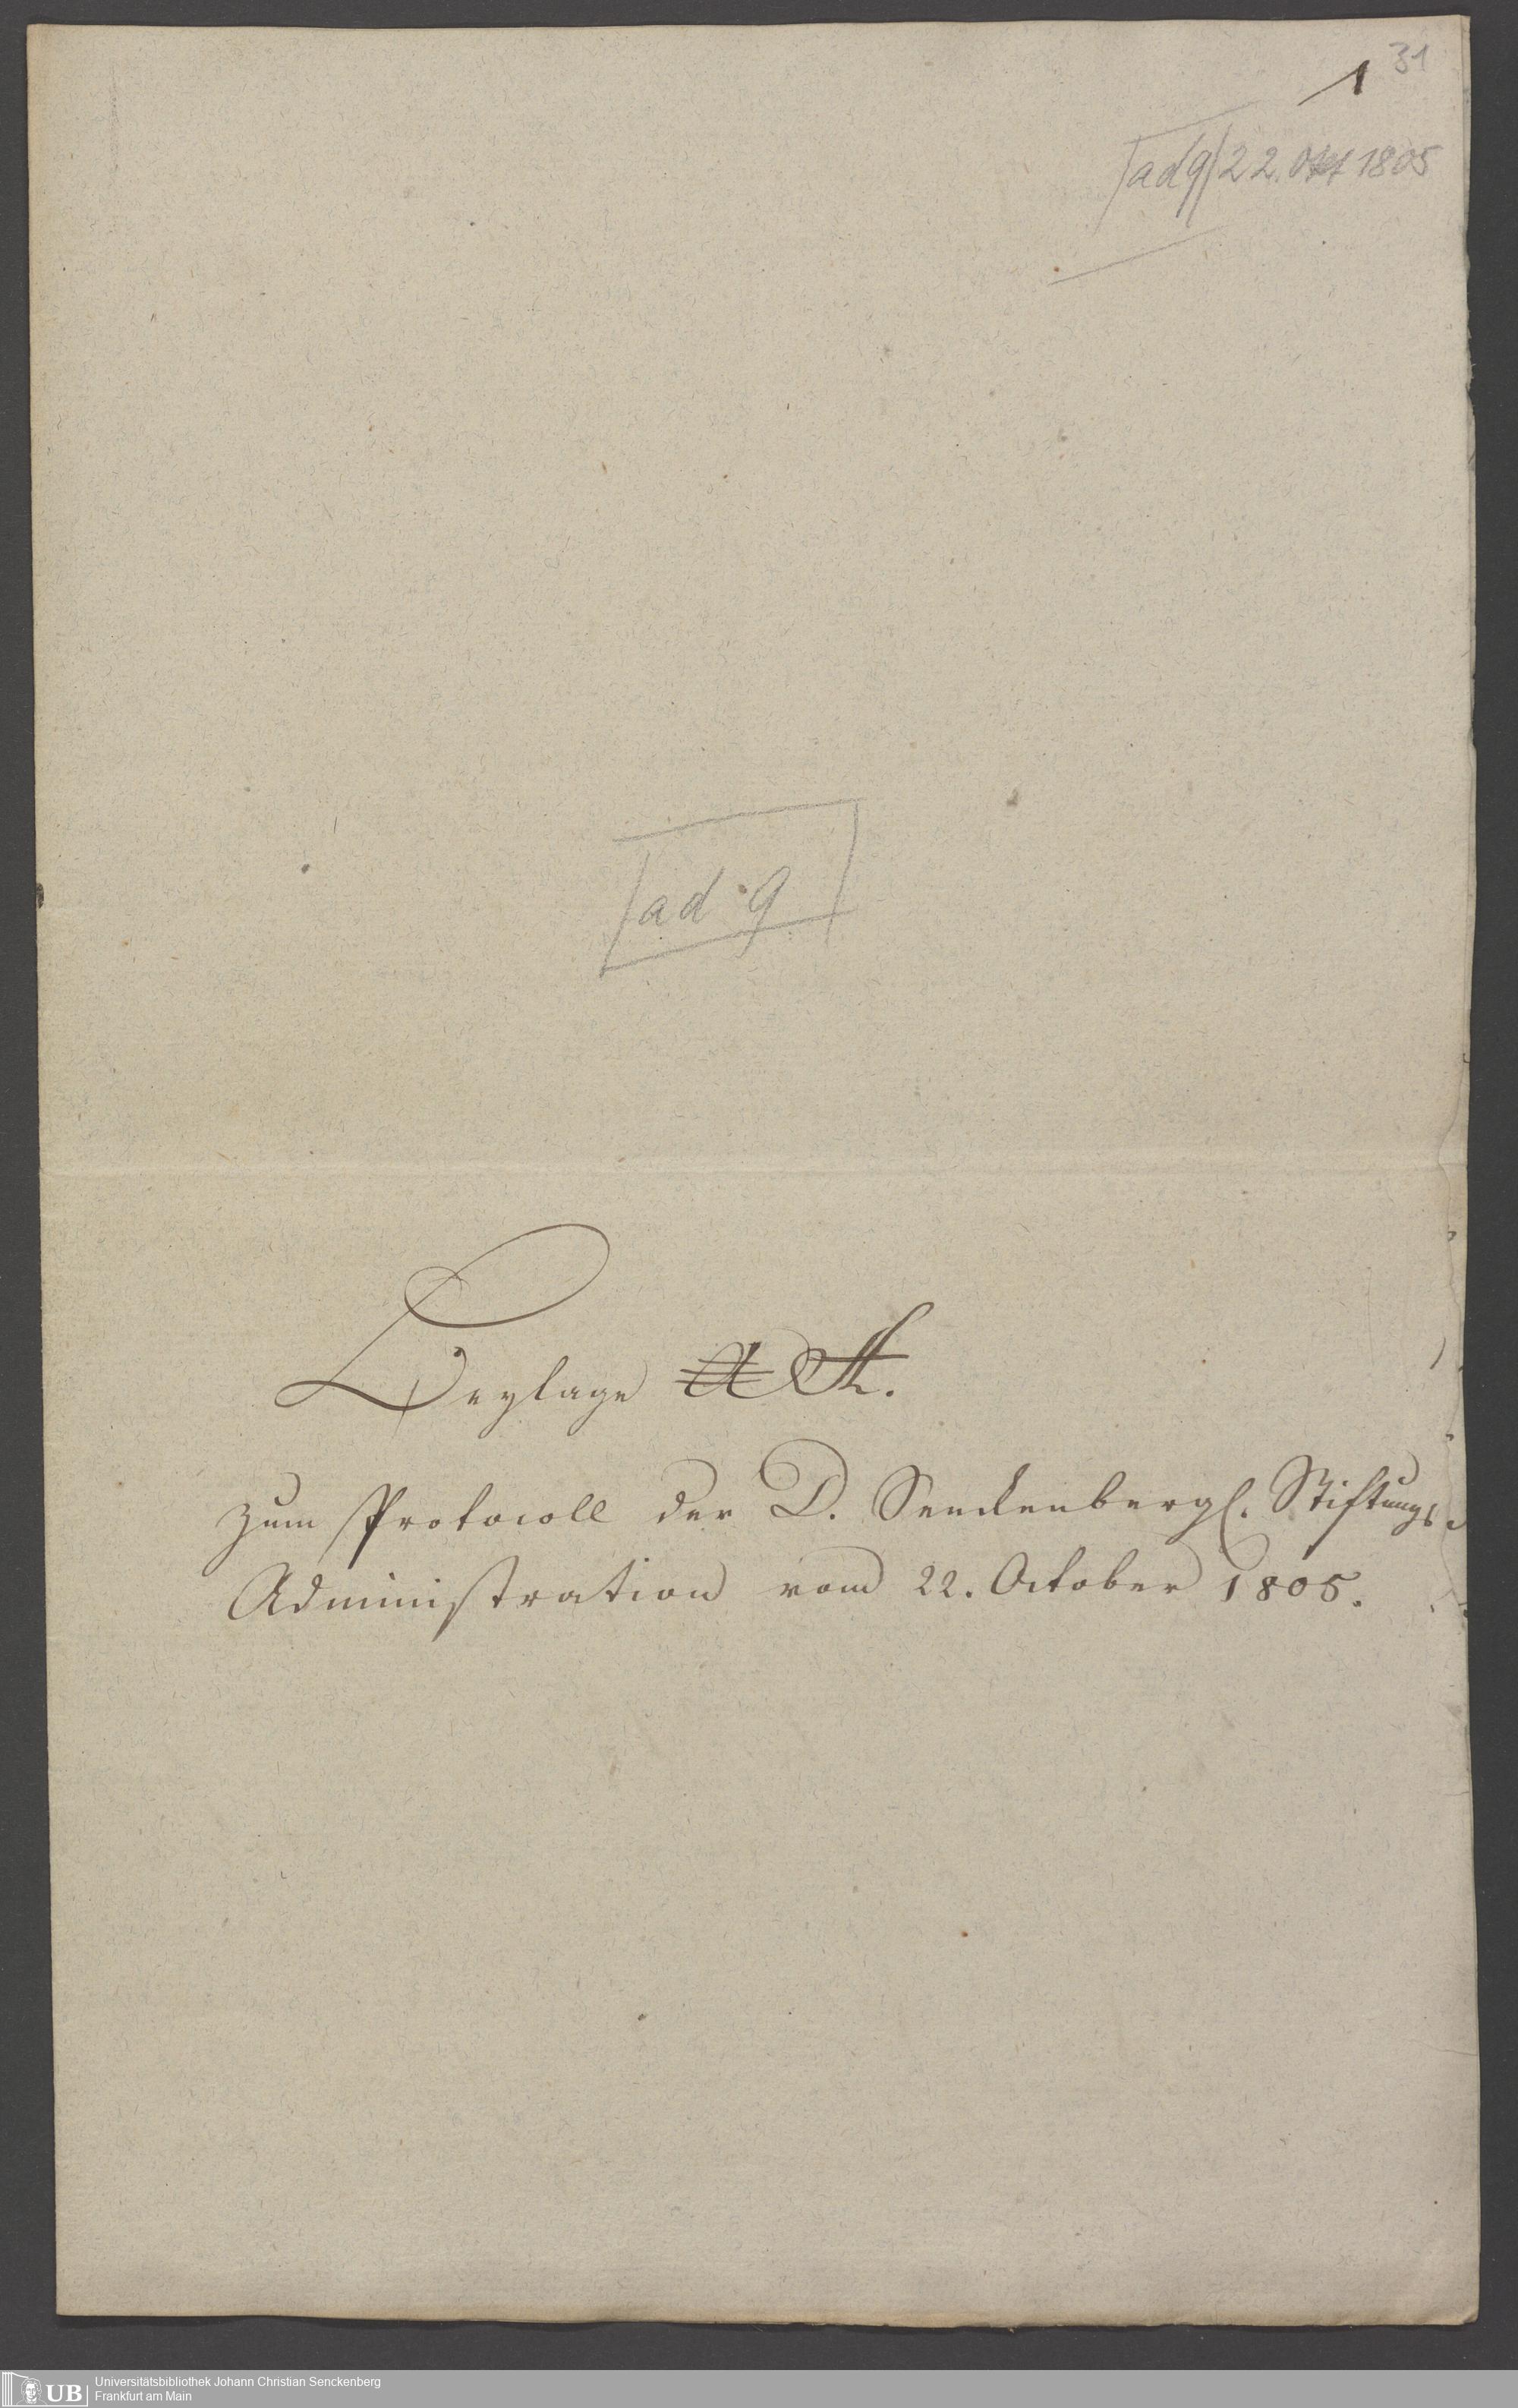 31
1
ad 9 22. Okt 1805
ad 9
Beylage A A.
zum Protocoll der D. Senckenbergl. Stiftungs-
Administration vom 22. October 1805.
UB
Universitätsbibliothek Johann Christian Senckenberg
Frankfurt am Main